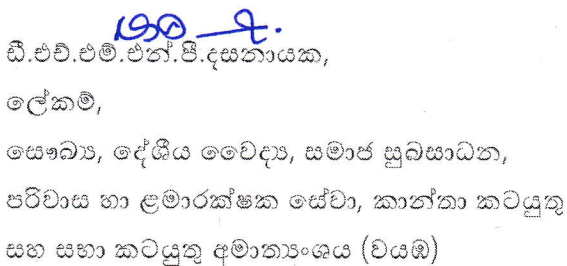 ඩී.එච්.එම්.එන්.පී.දසනායක,
ලේකම්,
සෞඛ්‍ය, දේශීය වෛද්‍ය, සමාජ සුබසාධන,
පරිවාස හා ළමාරක්ෂක සේවා, කාන්තා කටයුතු
සහ සභා කටයුතු අමාත්‍යංශය (වයඹ)